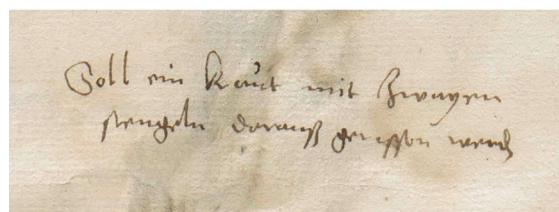 Soll ein Kraut mit zwayen
stengeln darauß gerissen werdn